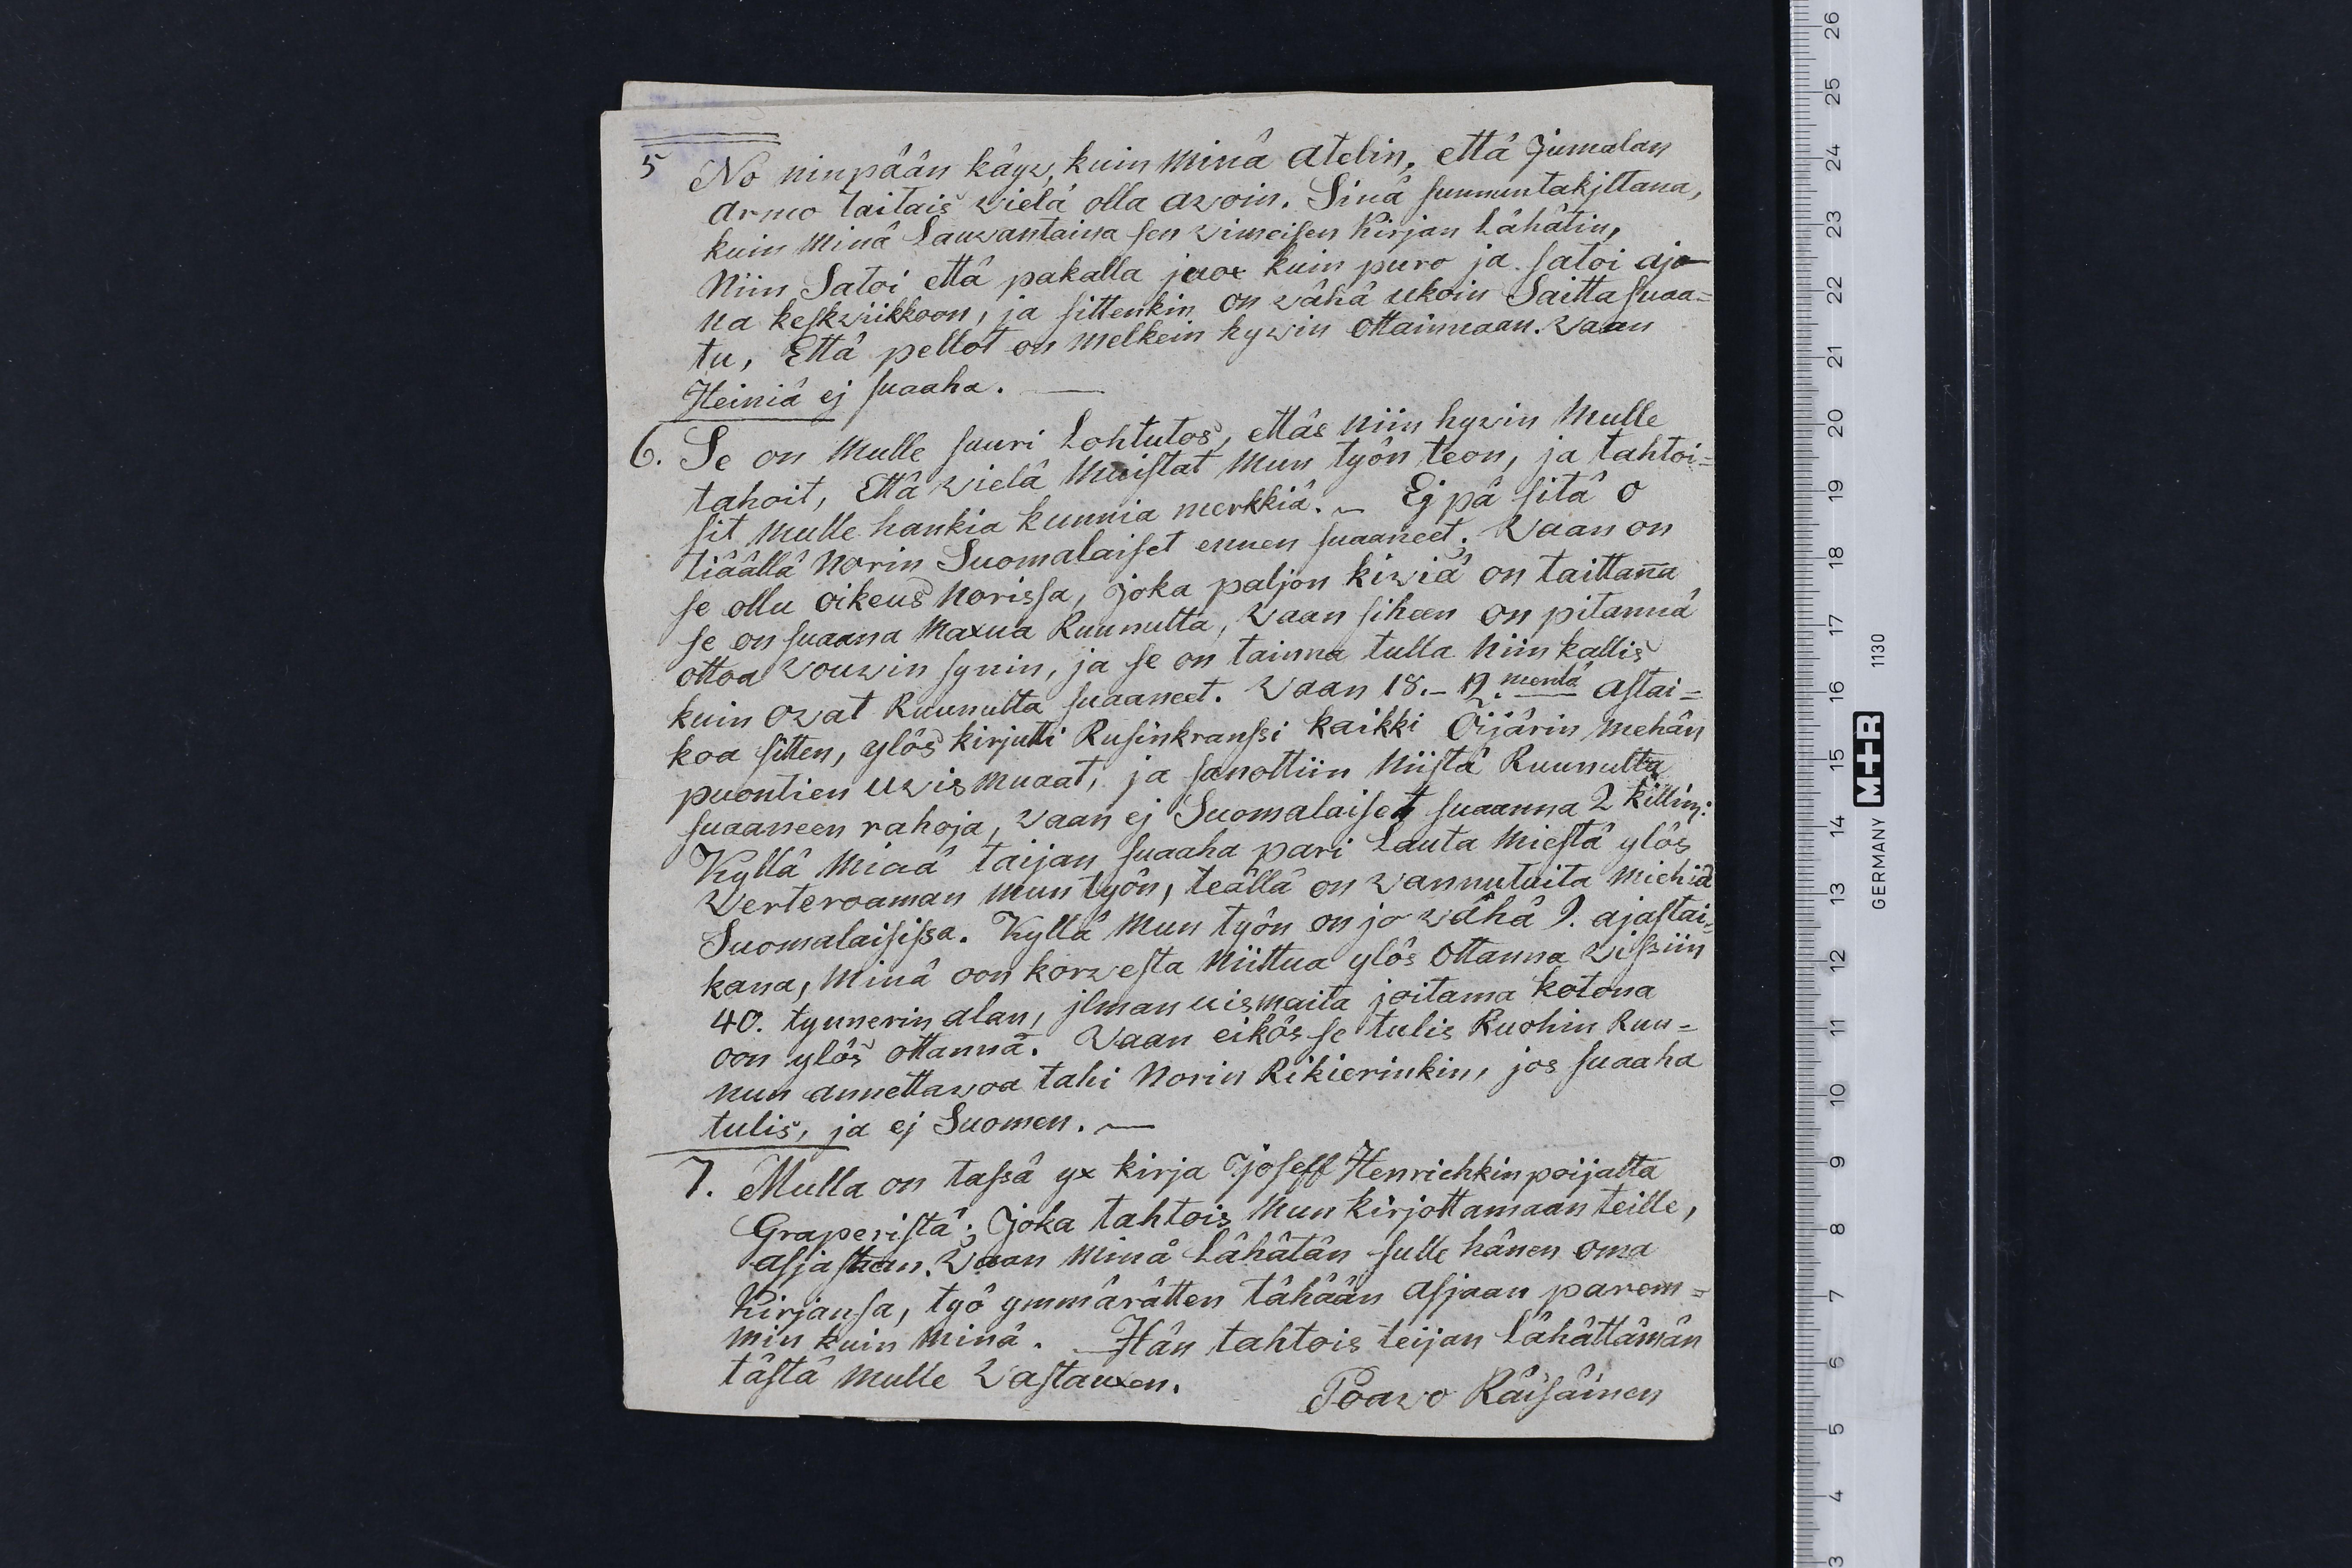 5 No ninpään käyw, kuin minä atelin, että Jumalan
armo taitais wielä olla awoin. Sinä sunnuntakjttana,
kuin minä Lauvantaina sen wimeisen Kirjan Lähätin,
Niin Satoi että pakalla juox kuin puro ja satoi aja
na keskwiikkoon, ja sittenkin on wähä ukoin Saitta suaa=
tu, Että pellot on melkein hywin Ottainnaan. waan
Heiniä ej suaaha. —
6. Se on Mulle suuri Lohtutos, ettäs niin hywin Mulle
tahoit, Että wielä Muistat Mun työn teon, ja tahtoi=
sit Mulle hankia kunnia merkkiä. — Ej pä sitä o
tiäällä Norin Suomalaiset ennen suaaneet. Waan on
se ollu oikeus Norissa, joka paljon kiwiä on taittana
se on suaana Maxua Ruunulta, Waan siheen on pitannä
ottoa wouwin synin, ja se on tainna tulla Niin kallis
kuin Owat Ruunulta suaaneet. Waan 18.– 19 mentä astai=
koa sitten, ylös kirjutti Rusinkranssi kaikki Öijärin Mehän
puontien uwis muaat, ja sanottiin Niistä Ruunulta
suaaneen rahoja, Waan ej Suomalaiset suaanna 2 killin:
Kyllä Miaä taijan suaaha pari Lauta Miestä ylös
Werteroaman Mun työn, teällä on Wannutuita Miehiä
Suomalaisissa. Kyllä Mun työn on jo wähä 9. ajastai=
kana, Minä oon korwesta Niittua ylös Ottanna Wissiin
40. tynnerin alan, jlman uismaita joitama kotona
oon ylös ottanna. Waan eikös se tulis Ruohin Ruu=
nun annettawoa tahi Norin Rikierinkin, jos suaaha
tulis, ja ej Suomen. —
7. Mulla on tassä yx kirja Joseff Henrichkin poijalta
Graperistä; Joka tahtois Mun kirjottamaan teille,
asjastaan. Waan Minä Lähätän sulle hänen oma
Kirjansa, työ ymmärätten tähään Asjaan parem=
min kuin Minä. — Hän tahtois teijan Lähättämän
tästä Mulle Wastauxen.
Poawo Räisäinen
26
25
24
23
22
21
20
19
18
17
16
15
14
13
12
11
10
9
8
7
6
5
4
3
GERMANY M+R 1130